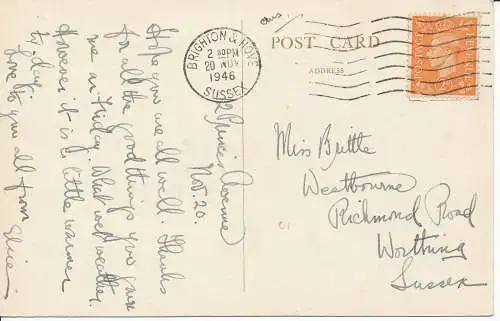 POST CARD
ADDRESS
BRIGHTON & HOVE
2 30PM
20 NOV
1946
SUSSEX
Princes Avenue
Nov. 20.
Hope you are all well. Thanks
for all the good things you gave
me on Friday. What wet weather.
However it is a little warmer
today.
Love to you all from Elsie
Miss Brittle
Westbourne
Richmond Road
Worthing
Sussex